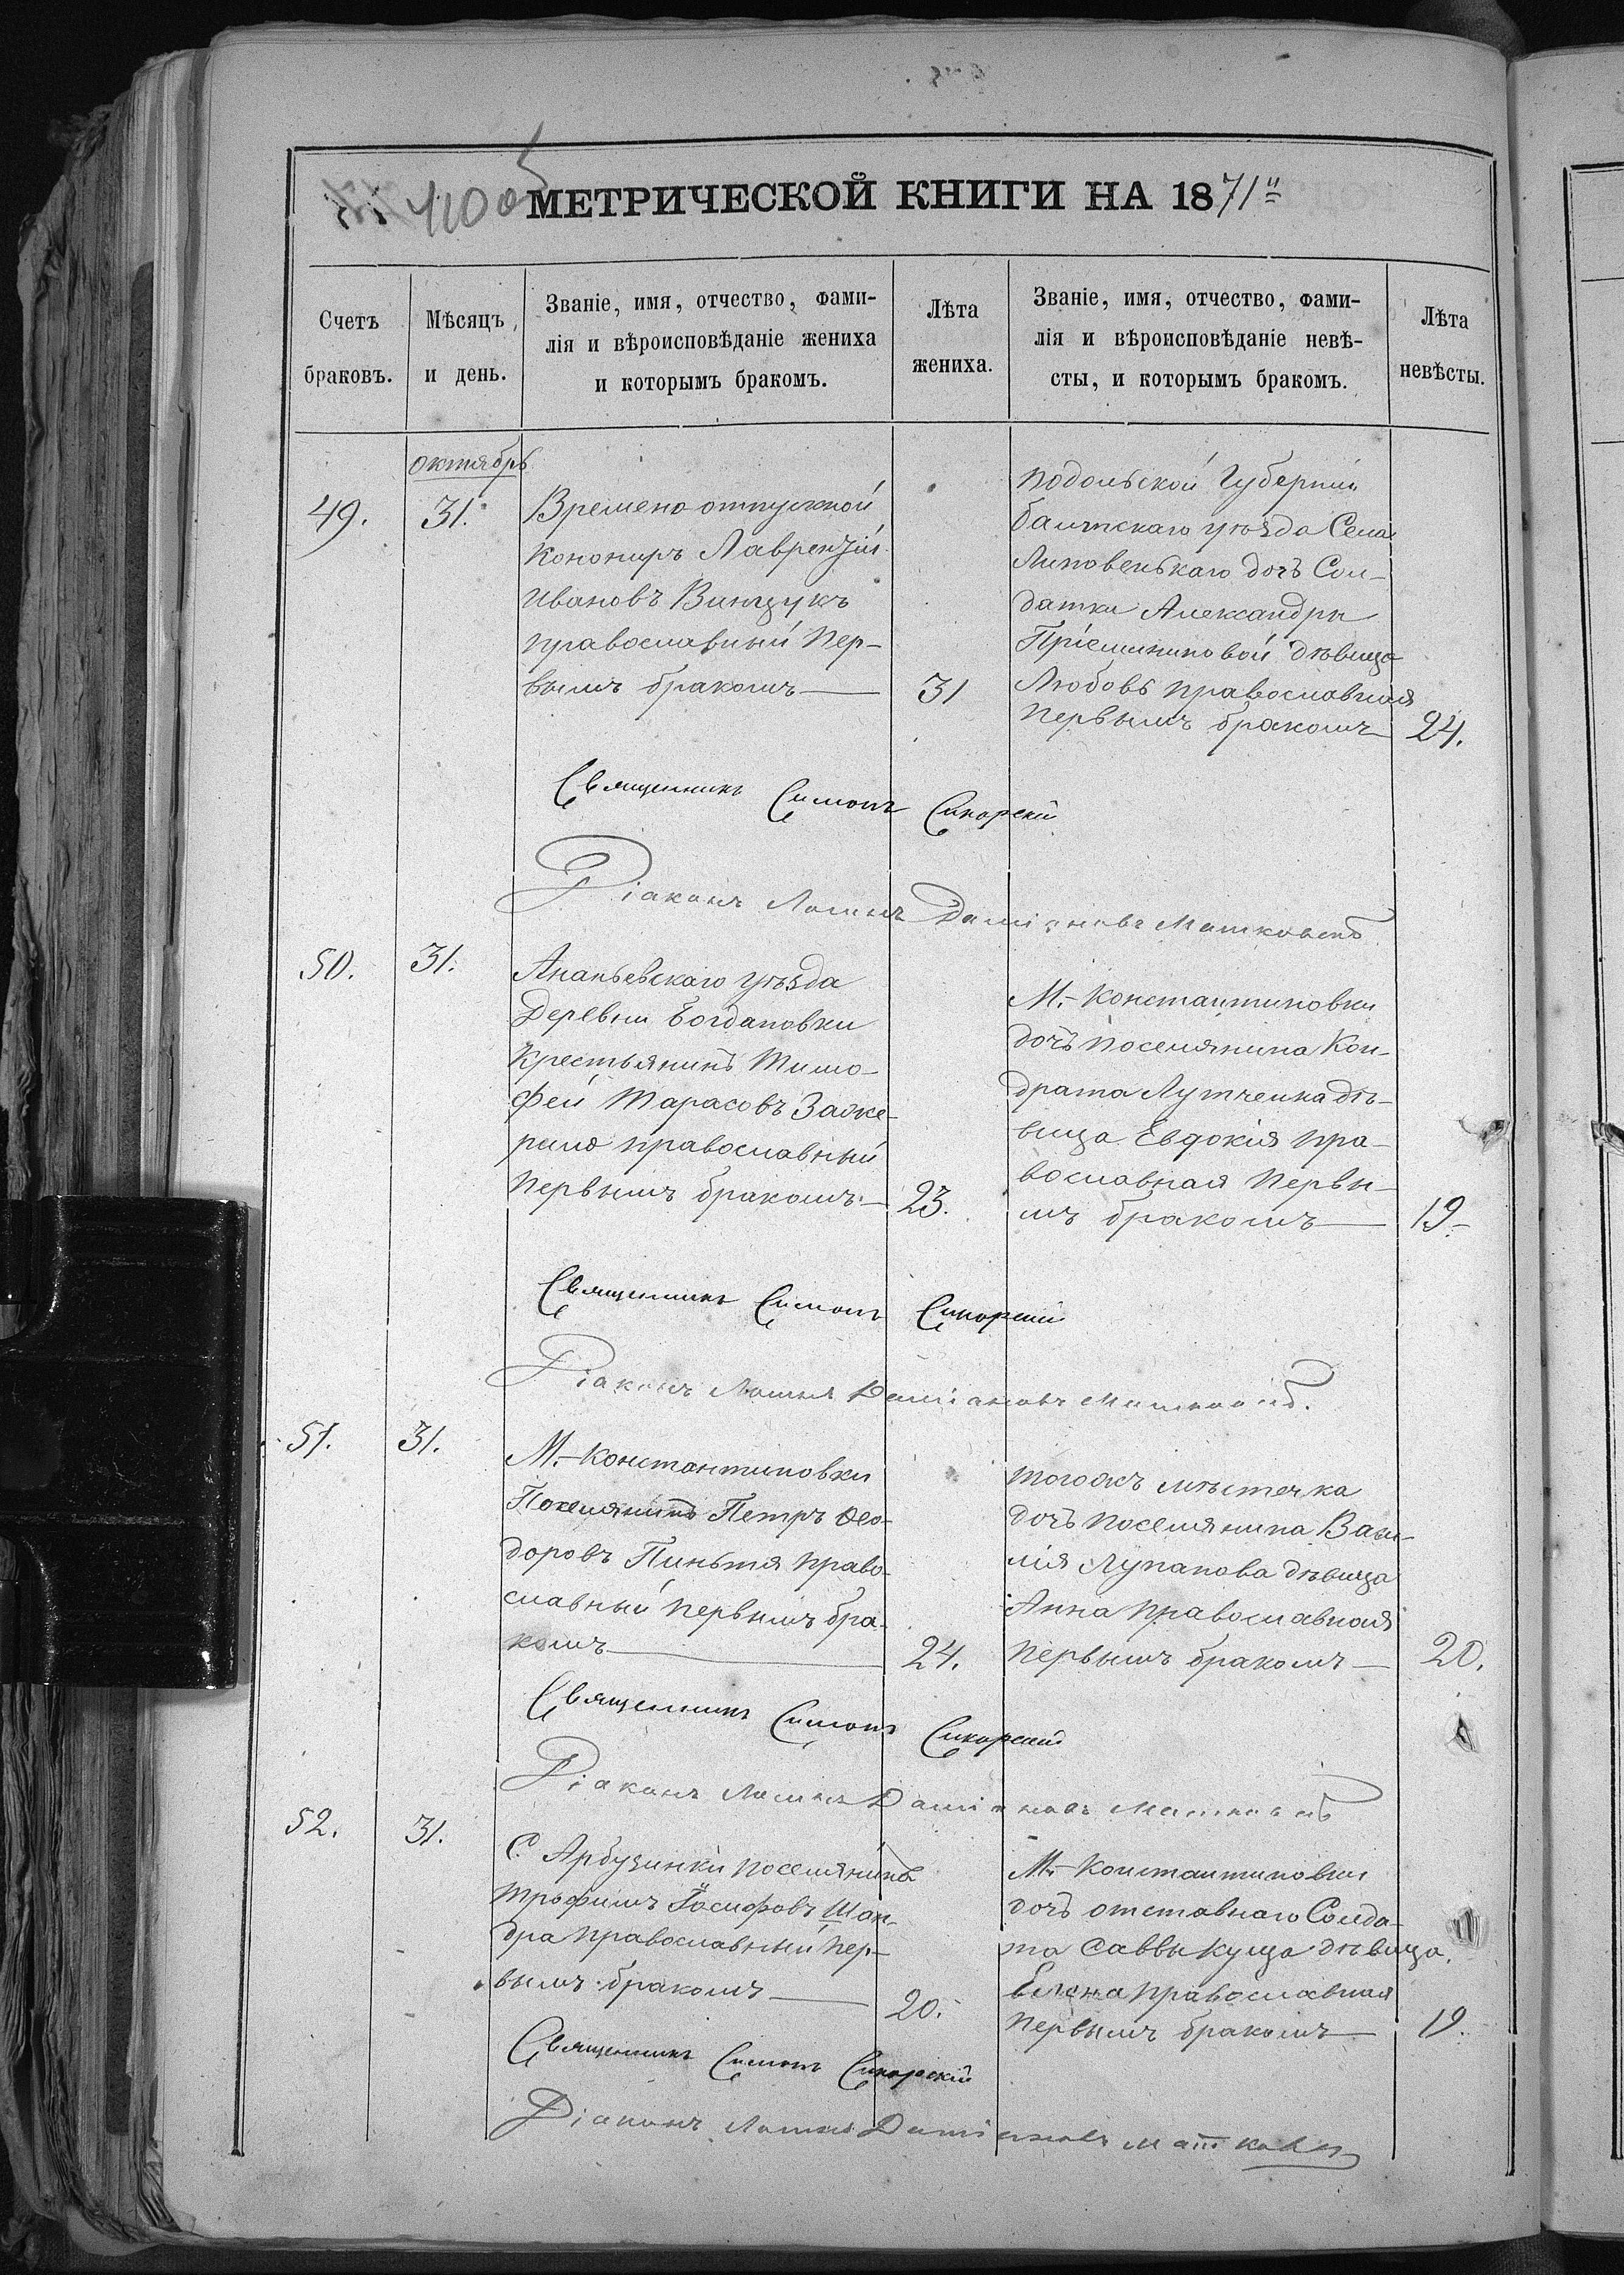 МЕТРИЧЕСКОЙ КНИГИ НА 1871
Счетъ
браковъ.
Мѣсяцъ
и день.
Званіе, имя, отчество, фами-
лія и вѣроисповѣданіе жениха
и которымъ бракомъ.
Лѣта
жениха.
Званіе, имя, отчество, фами-
лія и вѣроисповѣданіе невѣ-
сты, и которымъ бракомъ.
Лѣта
невѣсты.
октябрь
49.
31.
Времено отпускной
Конониръ Лаврентій
Ивановъ Винтукъ
православный Пер-
вымъ бракомъ
31
Подольской Губерніи
балтскаго уѣзда Села
Липовенькаго дочъ Сол-
датки Александры
дѣвица
Любовь православная
Первымъ бракомъ
24.
Священникъ Симонъ Сикорскій
Діаконъ Логинъ Даміановъ
50.
31.
Ананьевскаго уѣзда
Деревни Богдановки
Крестьянинъ Тимо-
фей Тарасовъ Заже-
рило православный
Первымъ бракомъ
23.
М.-Константиновки
дочъ поселянина Кон-
драта Лутченка дѣ-
вица Евдокія пра-
вославная Первы-
мъ бракомъ
19.
Священникъ Симонъ Сикорскій
Діаконъ Логинъ Даміановъ
51.
31.
М.-Константиновки
Поселянинъ Петръ Ѳео-
доровъ Пинтя право-
славный первымъ бра-
комъ
24.
тогожъ мѣстечка
дочъ поселянина Васи-
лія Лупанова дѣвица
Анна Православная
Первымъ бракомъ
20.
Священникъ Симонъ Сикорскій
Діаконъ Логинъ Даміановъ
52.
31.
С. Арбузинки поселянинъ
Трофимъ Іосифовъ Шан-
дра православный пер-
вымъ бракомъ
20.
М.-Константиновки
дочъ отставнаго Солда-
та Саввы Куца дѣвица
Елена православная
Первымъ бракомъ
19.
Священникъ Симонъ Сикорскій
Діаконъ Логинъ Даміановъ